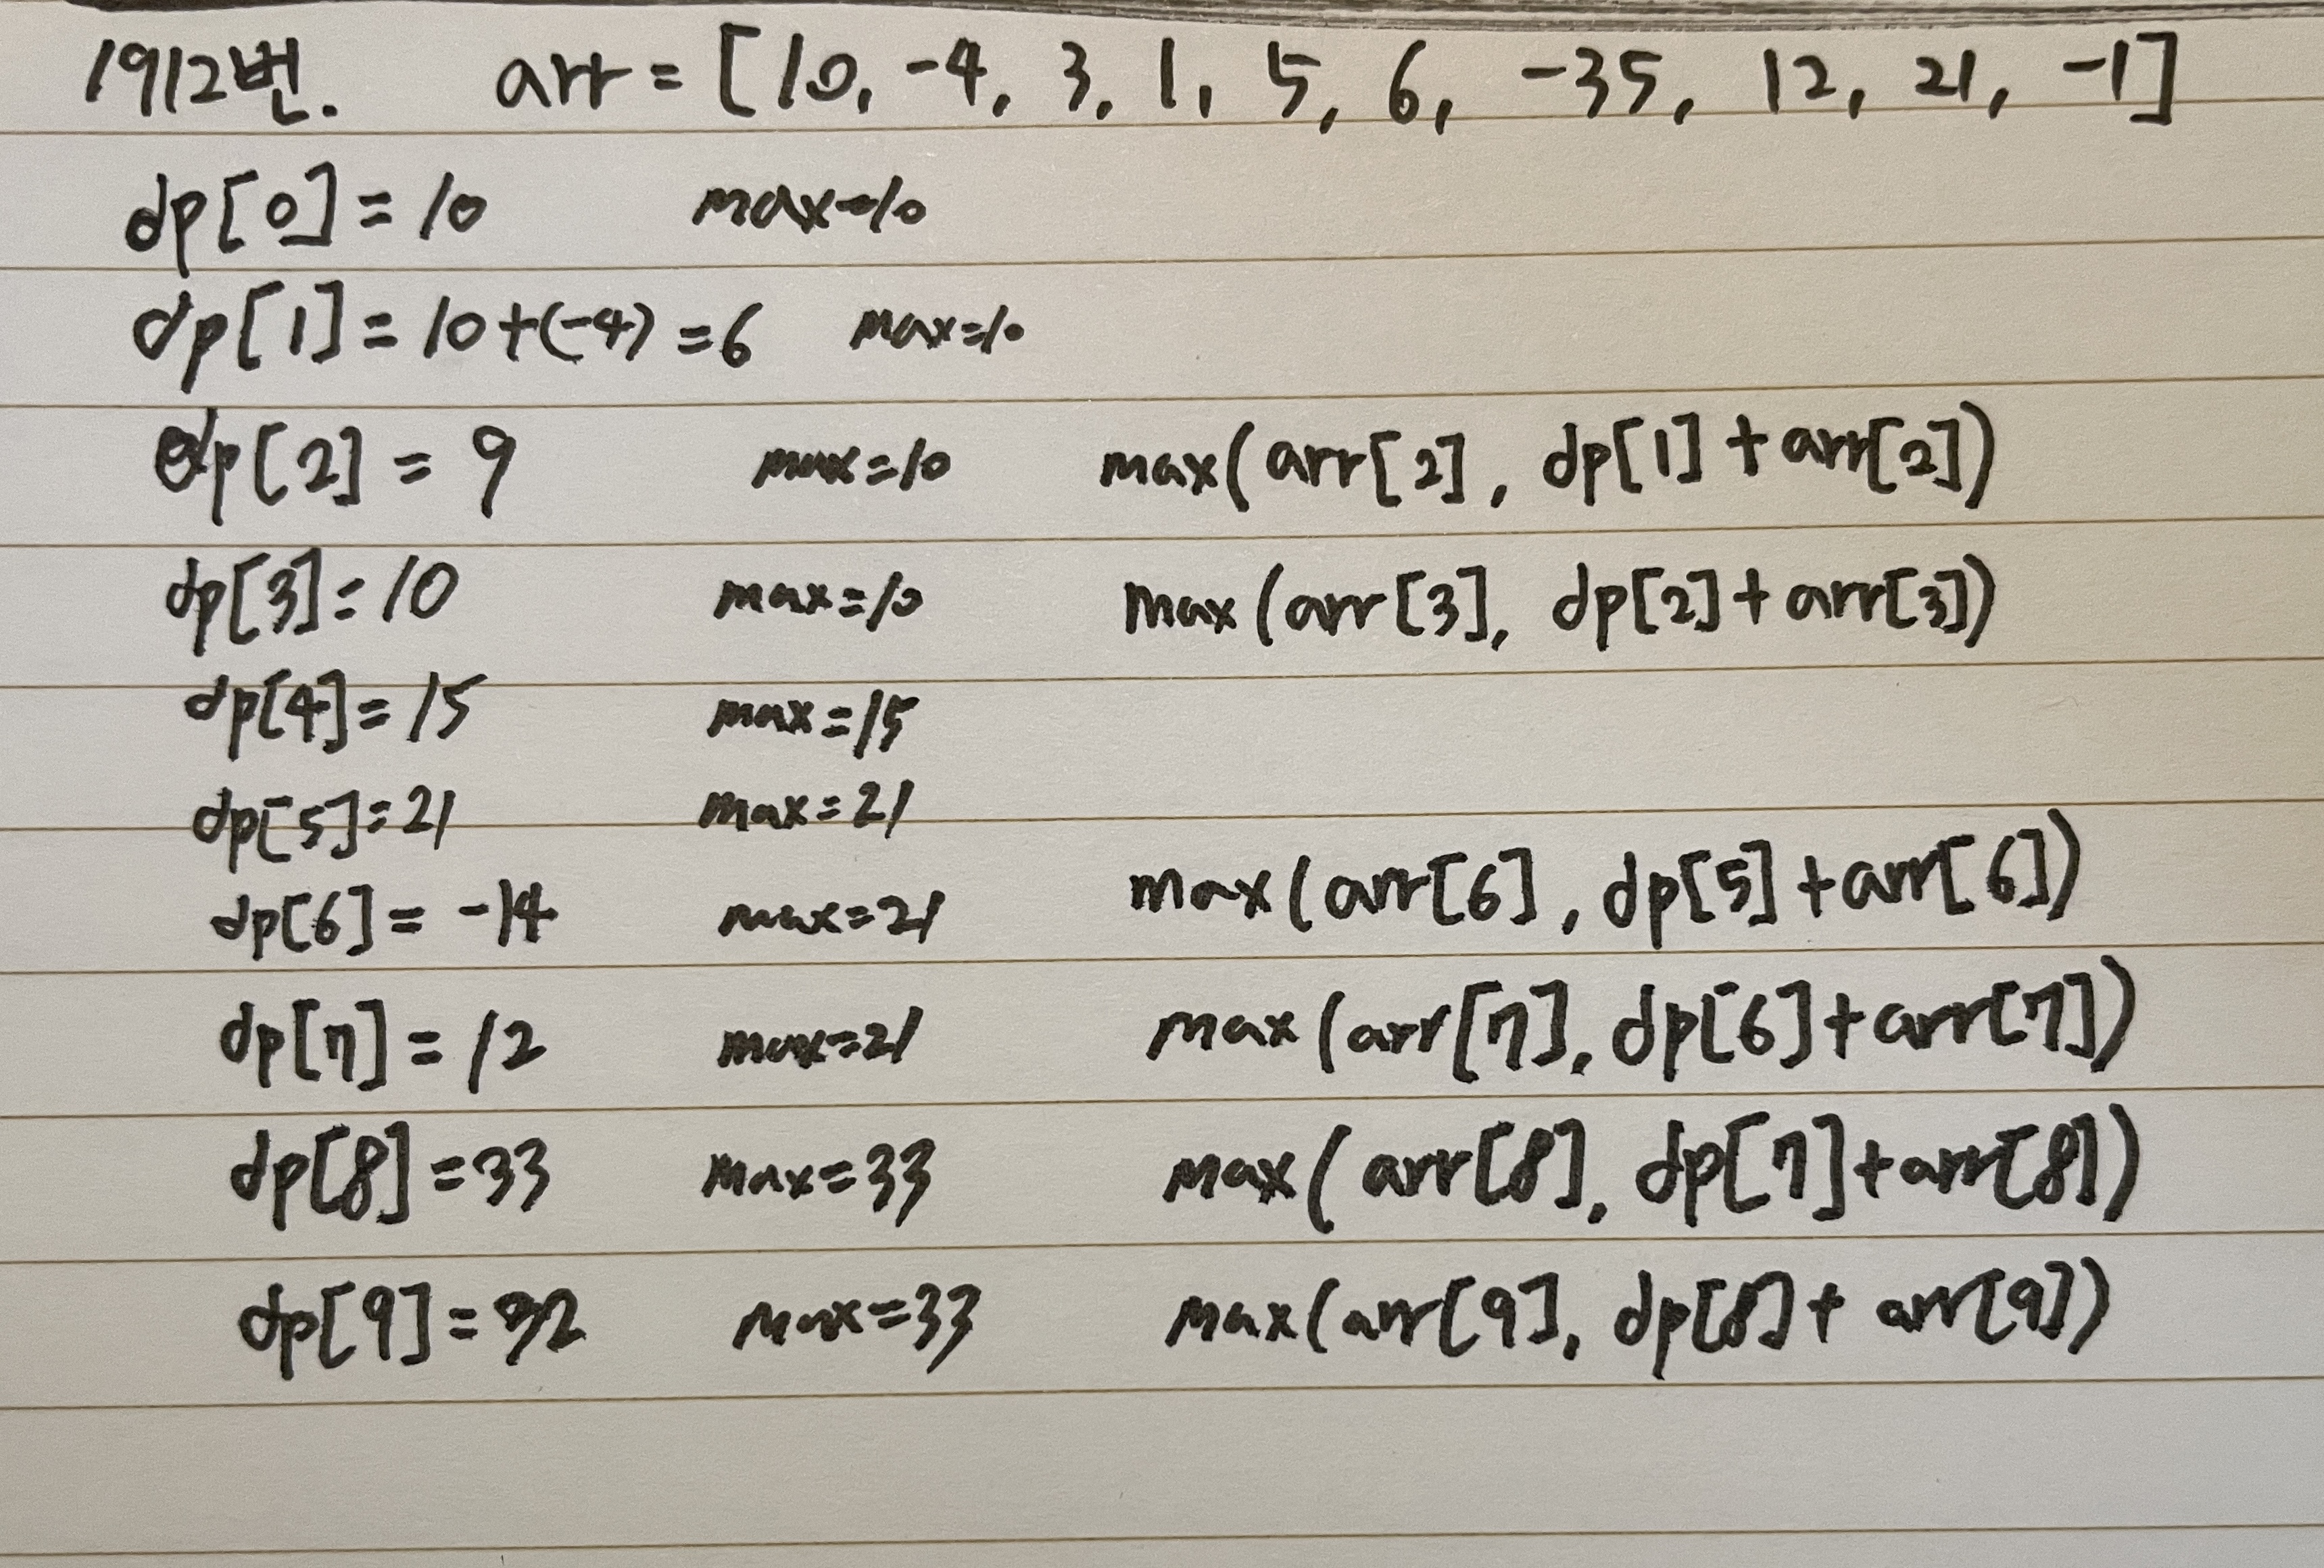 1912번. arr = [10, -4, 3, 1, 5, 6, -35, 12, 21, -1]
dp[0] = 10 max=10
dp[1] = 10+(-4) = 6 max=10
dp[2] = 9 max=10 max(arr[2], dp[1]+arr[2])
dp[3] = 10 max=10 max(arr[3], dp[2]+arr[3])
dp[4] = 15 max=15
dp[5] = 21 max=21
dp[6] = -14 max=21 max(arr[6], dp[5]+arr[6])
dp[7] = 12 max=21 max(arr[7], dp[6]+arr[7])
dp[8] = 33 max=33 max(arr[8], dp[7]+arr[8])
dp[9] = 32 max=33 max(arr[9], dp[8]+arr[9])